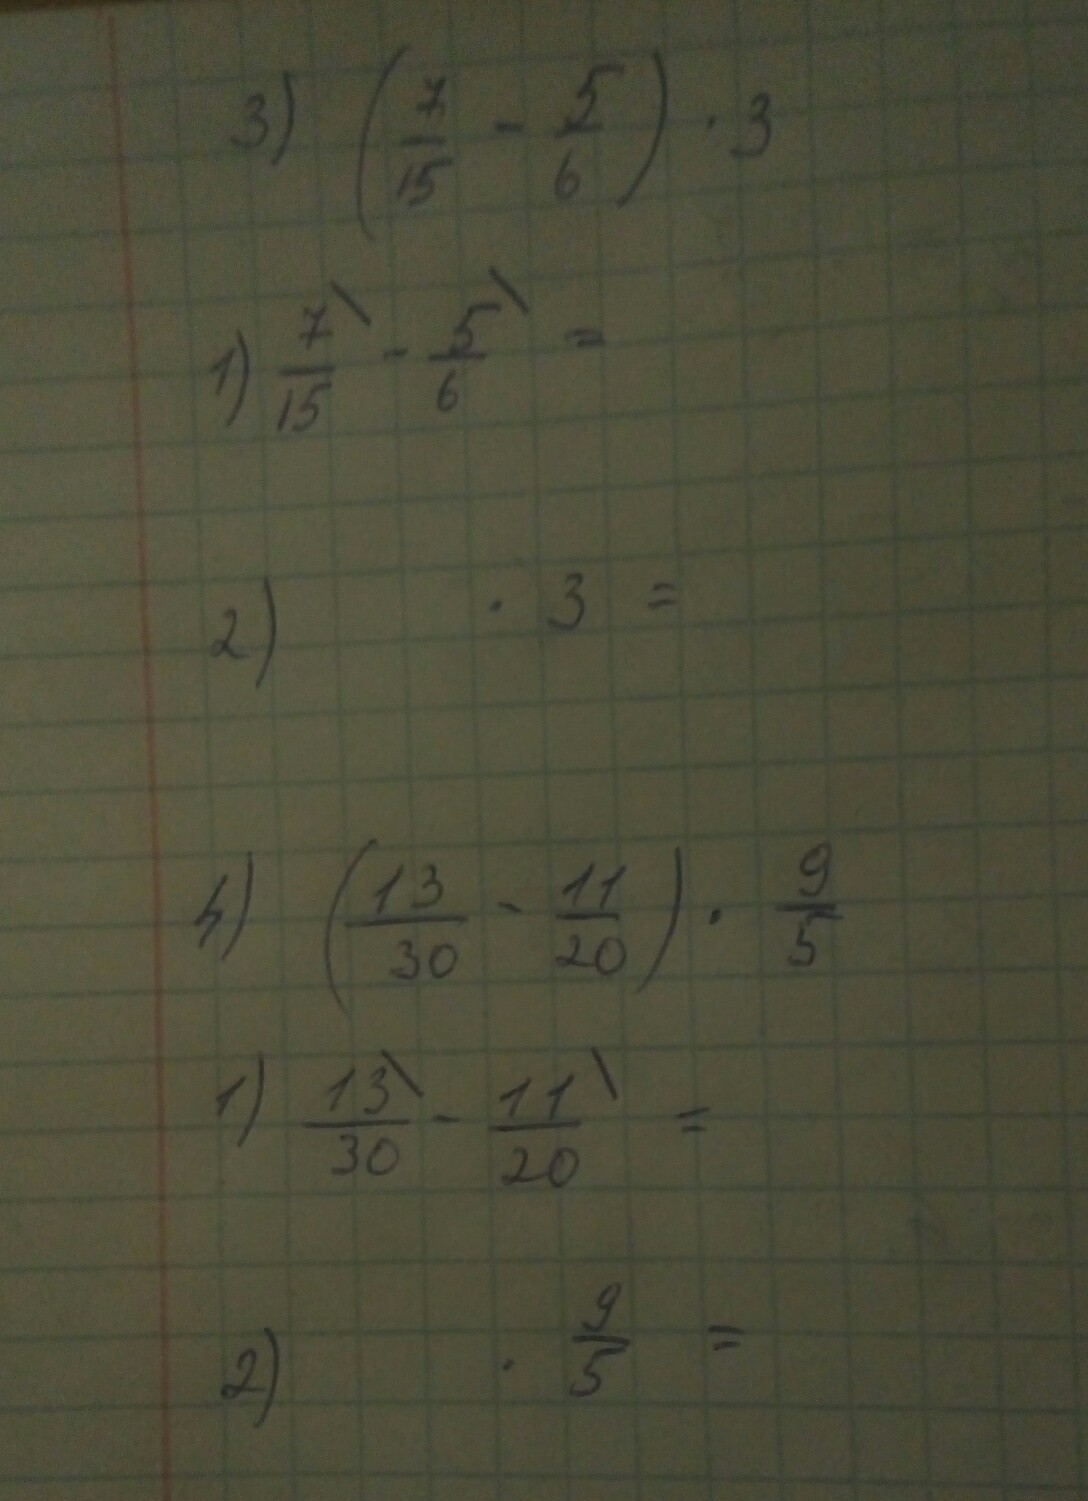 3) (7/15 - 5/6) · 3
1) 7\/15 - 5\/6 =
2) · 3 =
4) (13/30 - 11/20) · 9/5
1) 13\/30 - 11\/20 =
2) · 9/5 =